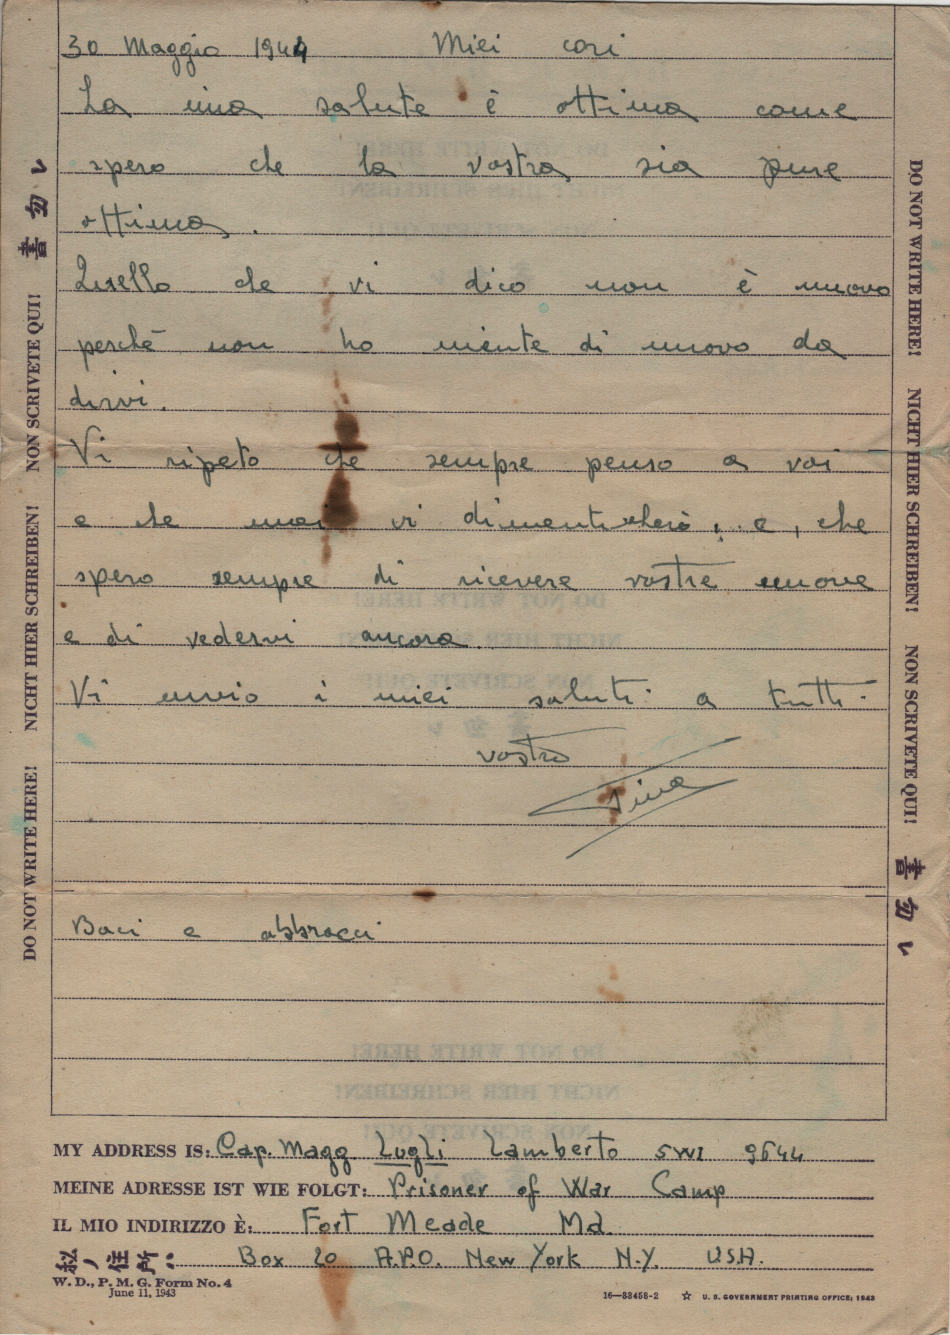 30 Maggio 1944 Miei cari
La mia salute è ottima come
spero che la vostra sia pure
ottima.
Quello che vi dico non è nuovo
perchè non ho niente di nuovo da
dirvi.
Vi ripeto che sempre penso a voi
e che mai vi dimenticherò, e, che
spero sempre di ricevere vostre nuove
e di vedervi ancora.
Vi invio i miei saluti a tutti.
vostro
Baci e abbracci
MY ADDRESS IS: Cap. Magg Lugli Lamberto 5WI 9644
MEINE ADRESSE IST WIE FOLGT: Prisoner of War Camp
IL MIO INDIRIZZO È: Fort Meade Md.
私ノ住所: Box 20 A.P.O. New York N.Y. U.S.A.
W. D., P. M. G. Form No. 4
June 11, 1943
16—33458-2 ☆ U. S. GOVERNMENT PRINTING OFFICE: 1943
DO NOT WRITE HERE! NICHT HIER SCHREIBEN! NON SCRIVETE QUI! 書勿レ
DO NOT WRITE HERE! NICHT HIER SCHREIBEN! NON SCRIVETE QUI! 書勿レ